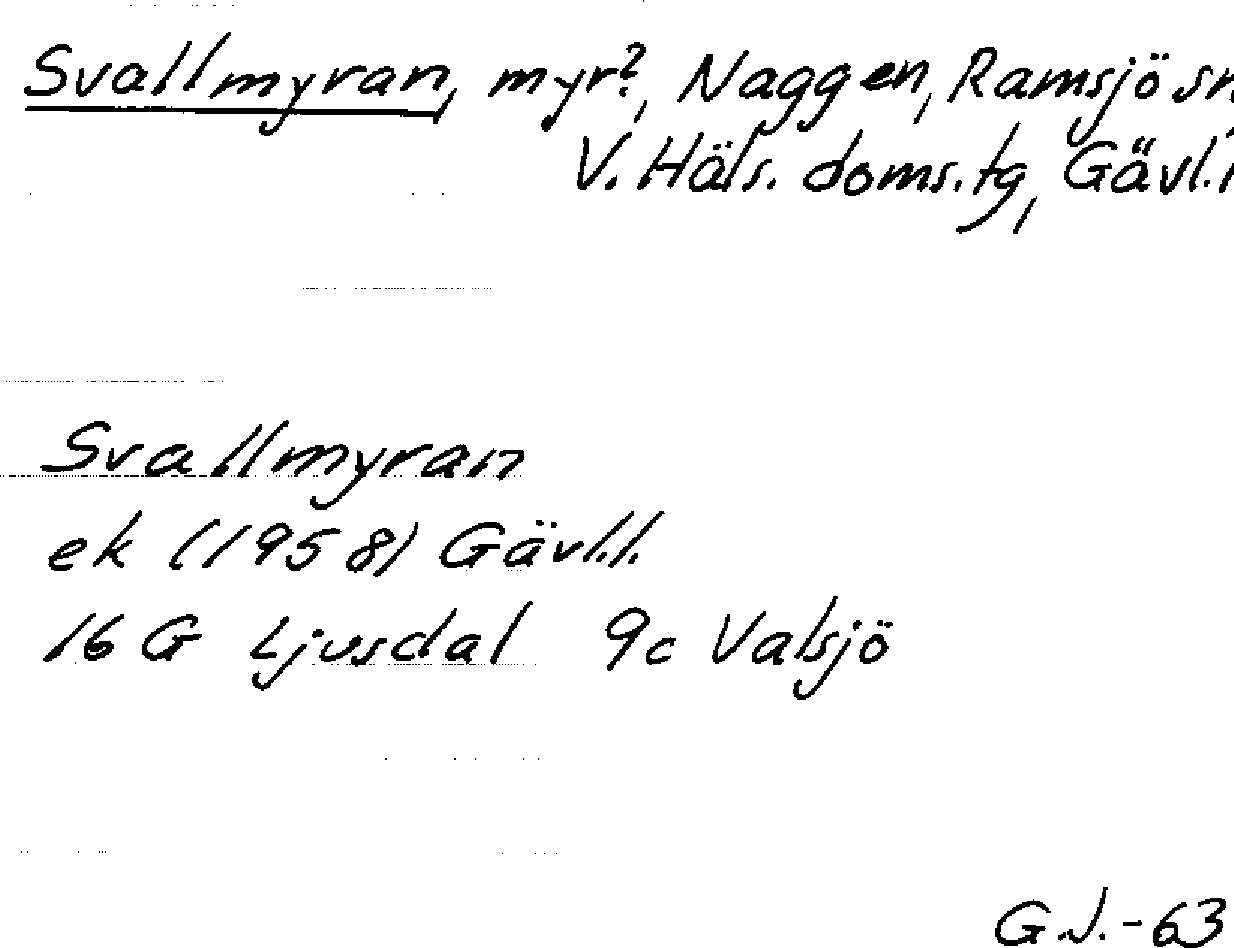 Svallmyran, myr?, Naggen, Ramsjö sn,
V. Häls. doms.tg, Gävl.l
Svallmyran
ek (1958) Gävl.l.
16 G Ljusdal 9c Valsjö
G.J.-63